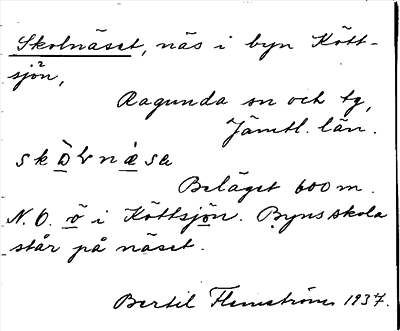 Skolnäset, näs i byn Kött-
sjön,
Ragunda sn och tg,
Jämtl. län.
skòlnæ̀sa
Beläget 600 m.
N.O. ö i Köttsjön. Byns skola
står på näset.
Bertil Flemström 1937.